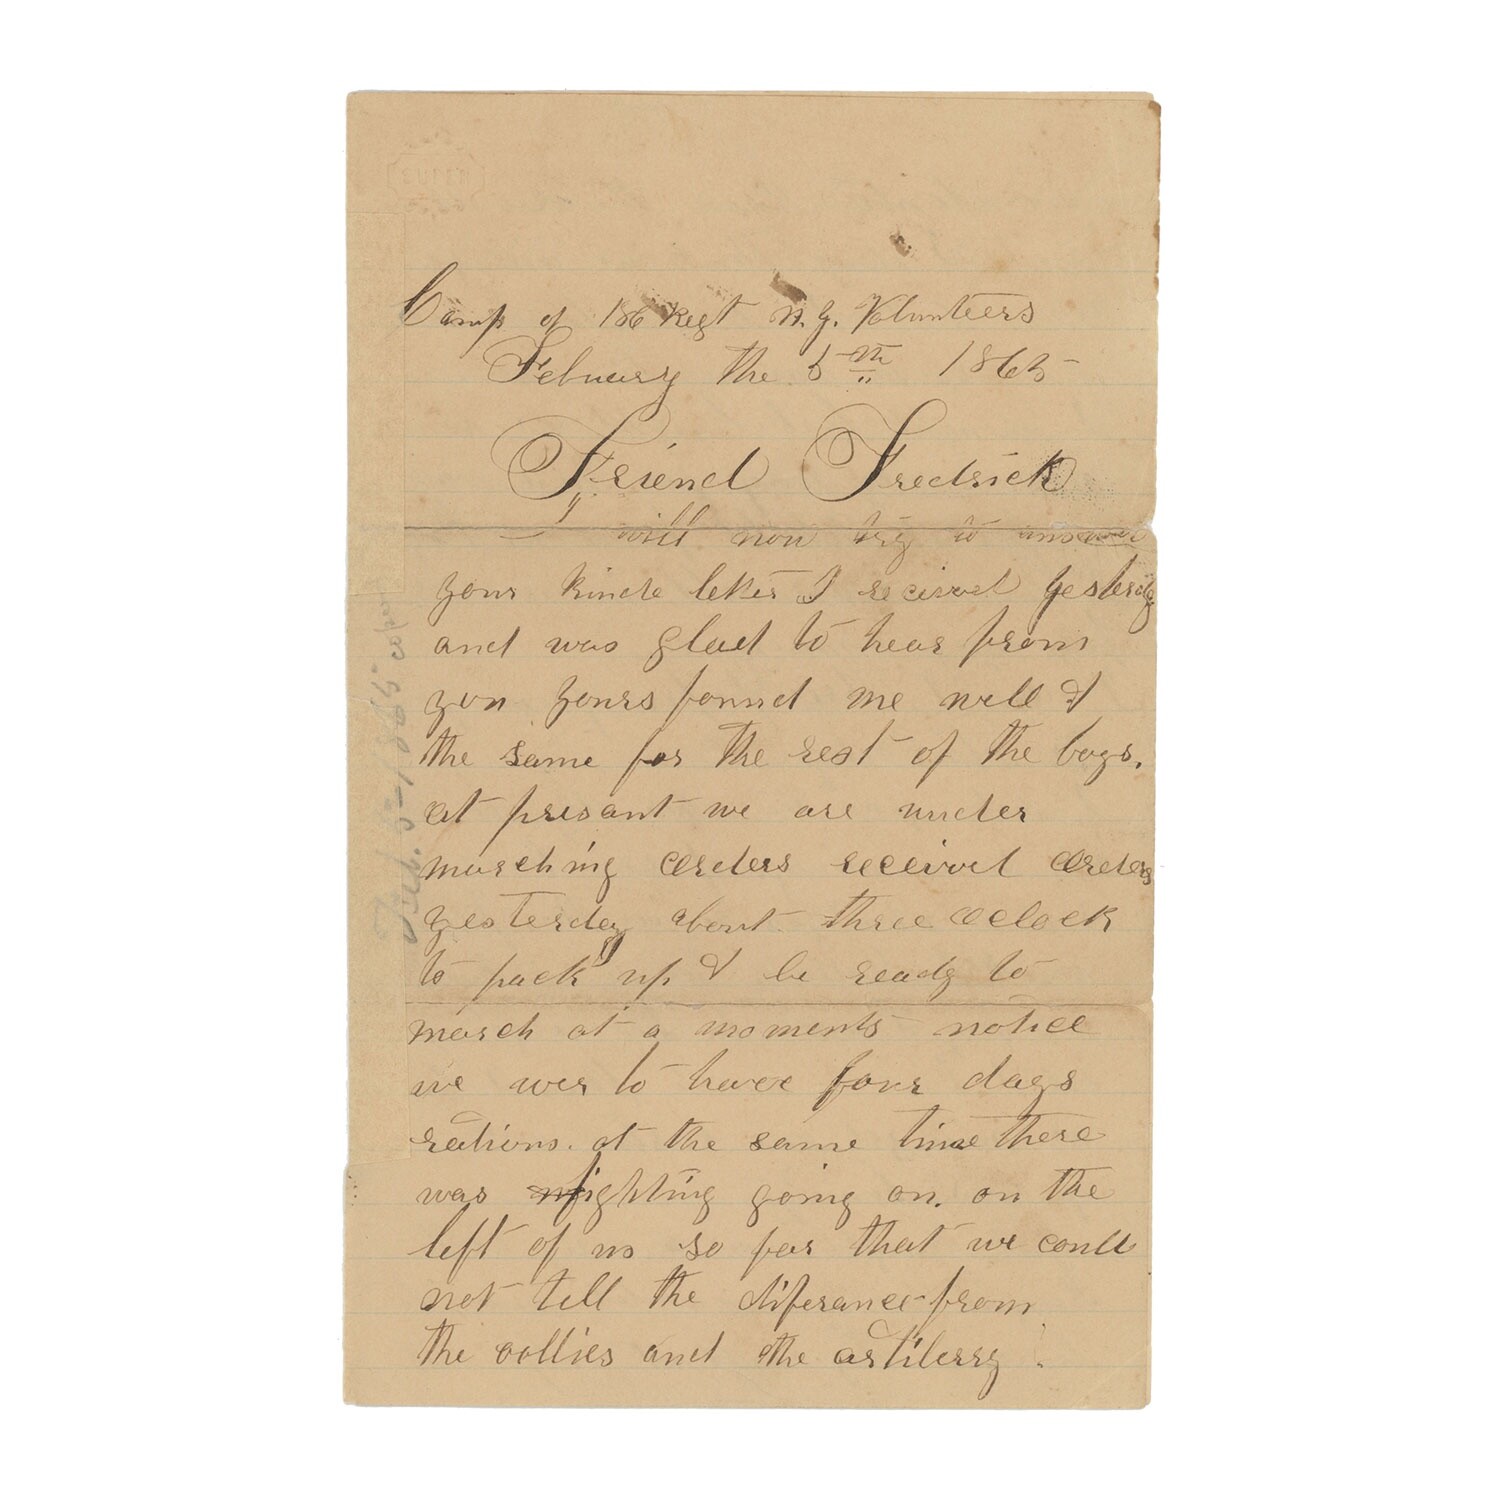 Camp of 186 Regt N.Y. Volunteers
Febuary the 5th 1865
Friend Fredrick
I will now try to answer
your kinde letter I recived yesterdy
and was glad to hear from
you yours found me well &
the same for the rest of the boys.
at presant we are under
marching orders receivd orders
yesterdey about three oclock
to pack up & be ready to
march at a moments notice
we wer to have four days
rations. at the same time there
was fighting going on. on the
left of us so far that we could
not tell the diferance from
the vollies and the artilerry.
Feb. 5-1865.